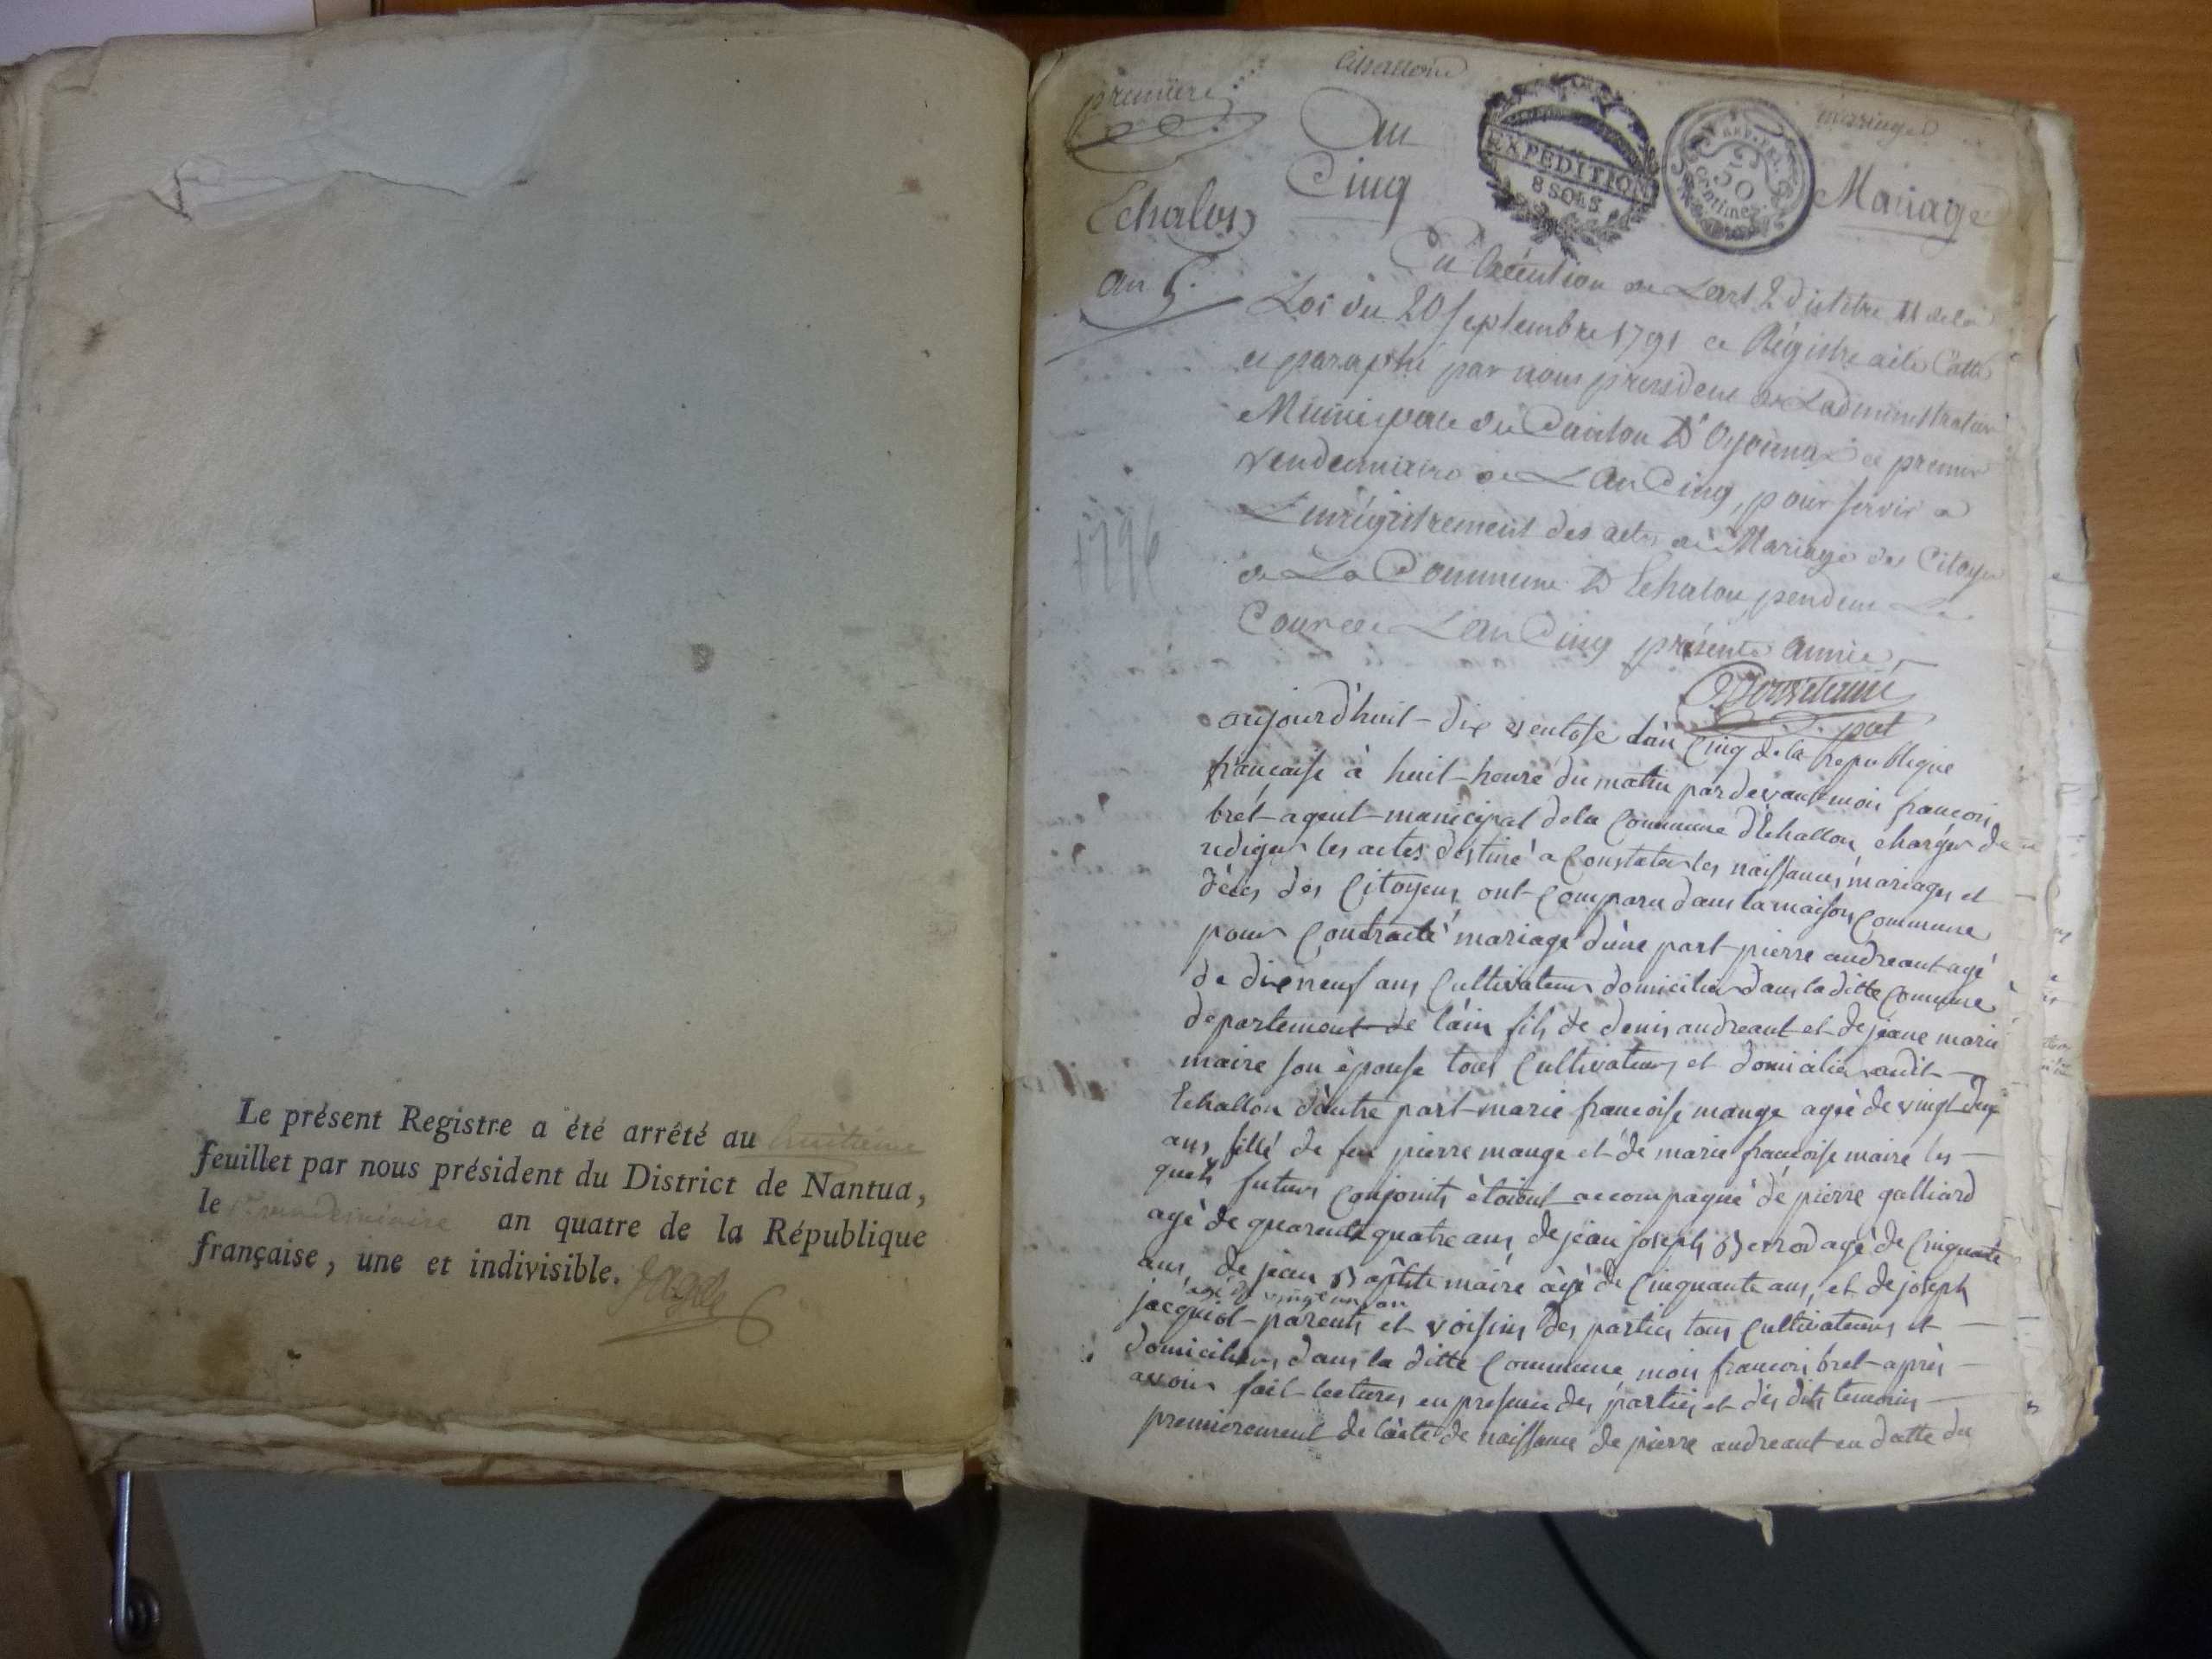 Le présent Registre a été arrêté au huitieme
feuillet par nous président du District de Nantua,
le 1er vendemiaire an quatre de la République
française, une et indivisible.
premiere
Echallon
mariages
An
Cinq
EXPEDITION
8 SOLS
50
centimes
Mariage
Echalon
an 5.
1796
En Execution de Lart 2 du titre 11 de la
Loi du 20 septembre 1791 ce Régistre a été Cotté
et paraphé par nous president de Ladministration
Municipale du Canton D'Oyonnax ce premier
vendemiaire de Lan Cinq, pour servir a
Lenrégistrement des actes de Mariage des Citoyens
de La Commune D Echalon pendent Le
Cour de Lan Cinq présente année,
aujourd'huit dix ventose dàn Cinq de la republique
francaise à huit heure du matin pardevant moi francois
bret agent municipal dela Commune d'Echallon charger de
rediger les actes destiné a Constater les naissances, mariages et
déces des Citoyens ont Comparu dans la maison Commune
pour Contracté mariage d'une part pierre andreant agé
de dixneuf ans Cultivateur domicilier dans la ditte Commune
departement de l'ain fils de denis andreant et de jeane marie
maire son épouse tous Cultivateurs et domicilier audit
Echallon d'autre part marie francoise mange agée de vingt deux
ans fille de feu pierre mange et de marie francoise maire les
quels futurs Conjoints étoient accompagné de pierre galliard
agé de quarente quatre ans, de jean joseph Berrod agé de Cinquante
ans, de jean Baptiste maire agé de Cinquante ans, et de joseph
agé de vingt un an
jacquiot parents et voisins des parties tous Cultivateurs et
domiciliers dans la ditte Commune, moi francois bret après
avoir fait lectures en presence des parties et des dits temoins
premierement de l'acte de naissance de pierre andreant en datte du